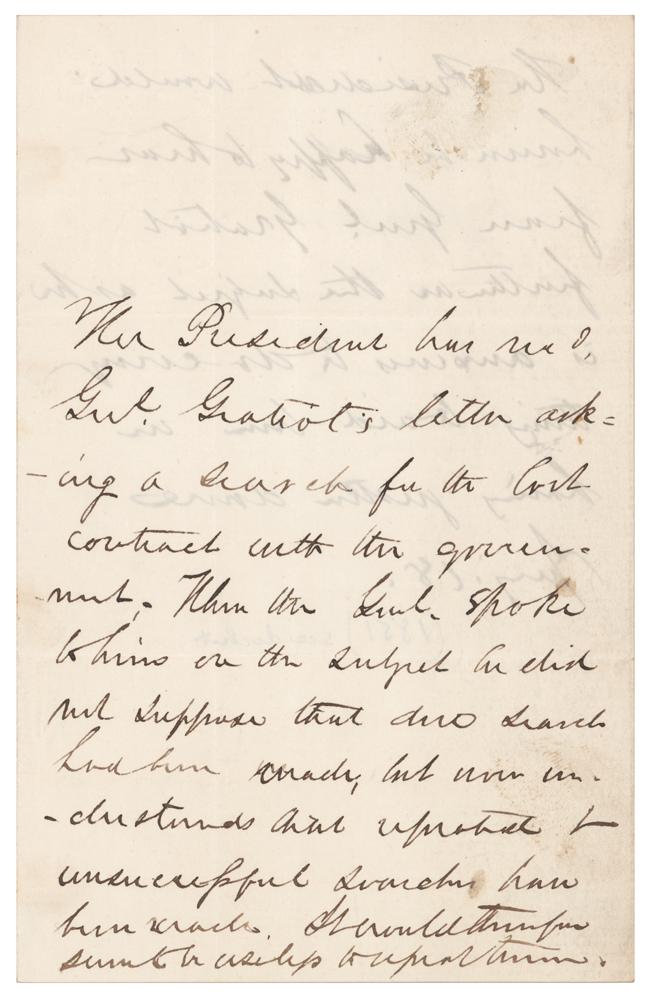 The President has read,
Genl. Gratiot's letter ask=
-ing a search for the lost
contract with the govern-
-ment,- When the Genl. spoke
to him on the subject he did
not suppose that due search
had been made, but now un-
-derstands that repeated &
unsuccessful searches have
been made. It would therefore
seem to be useless to repeat them.